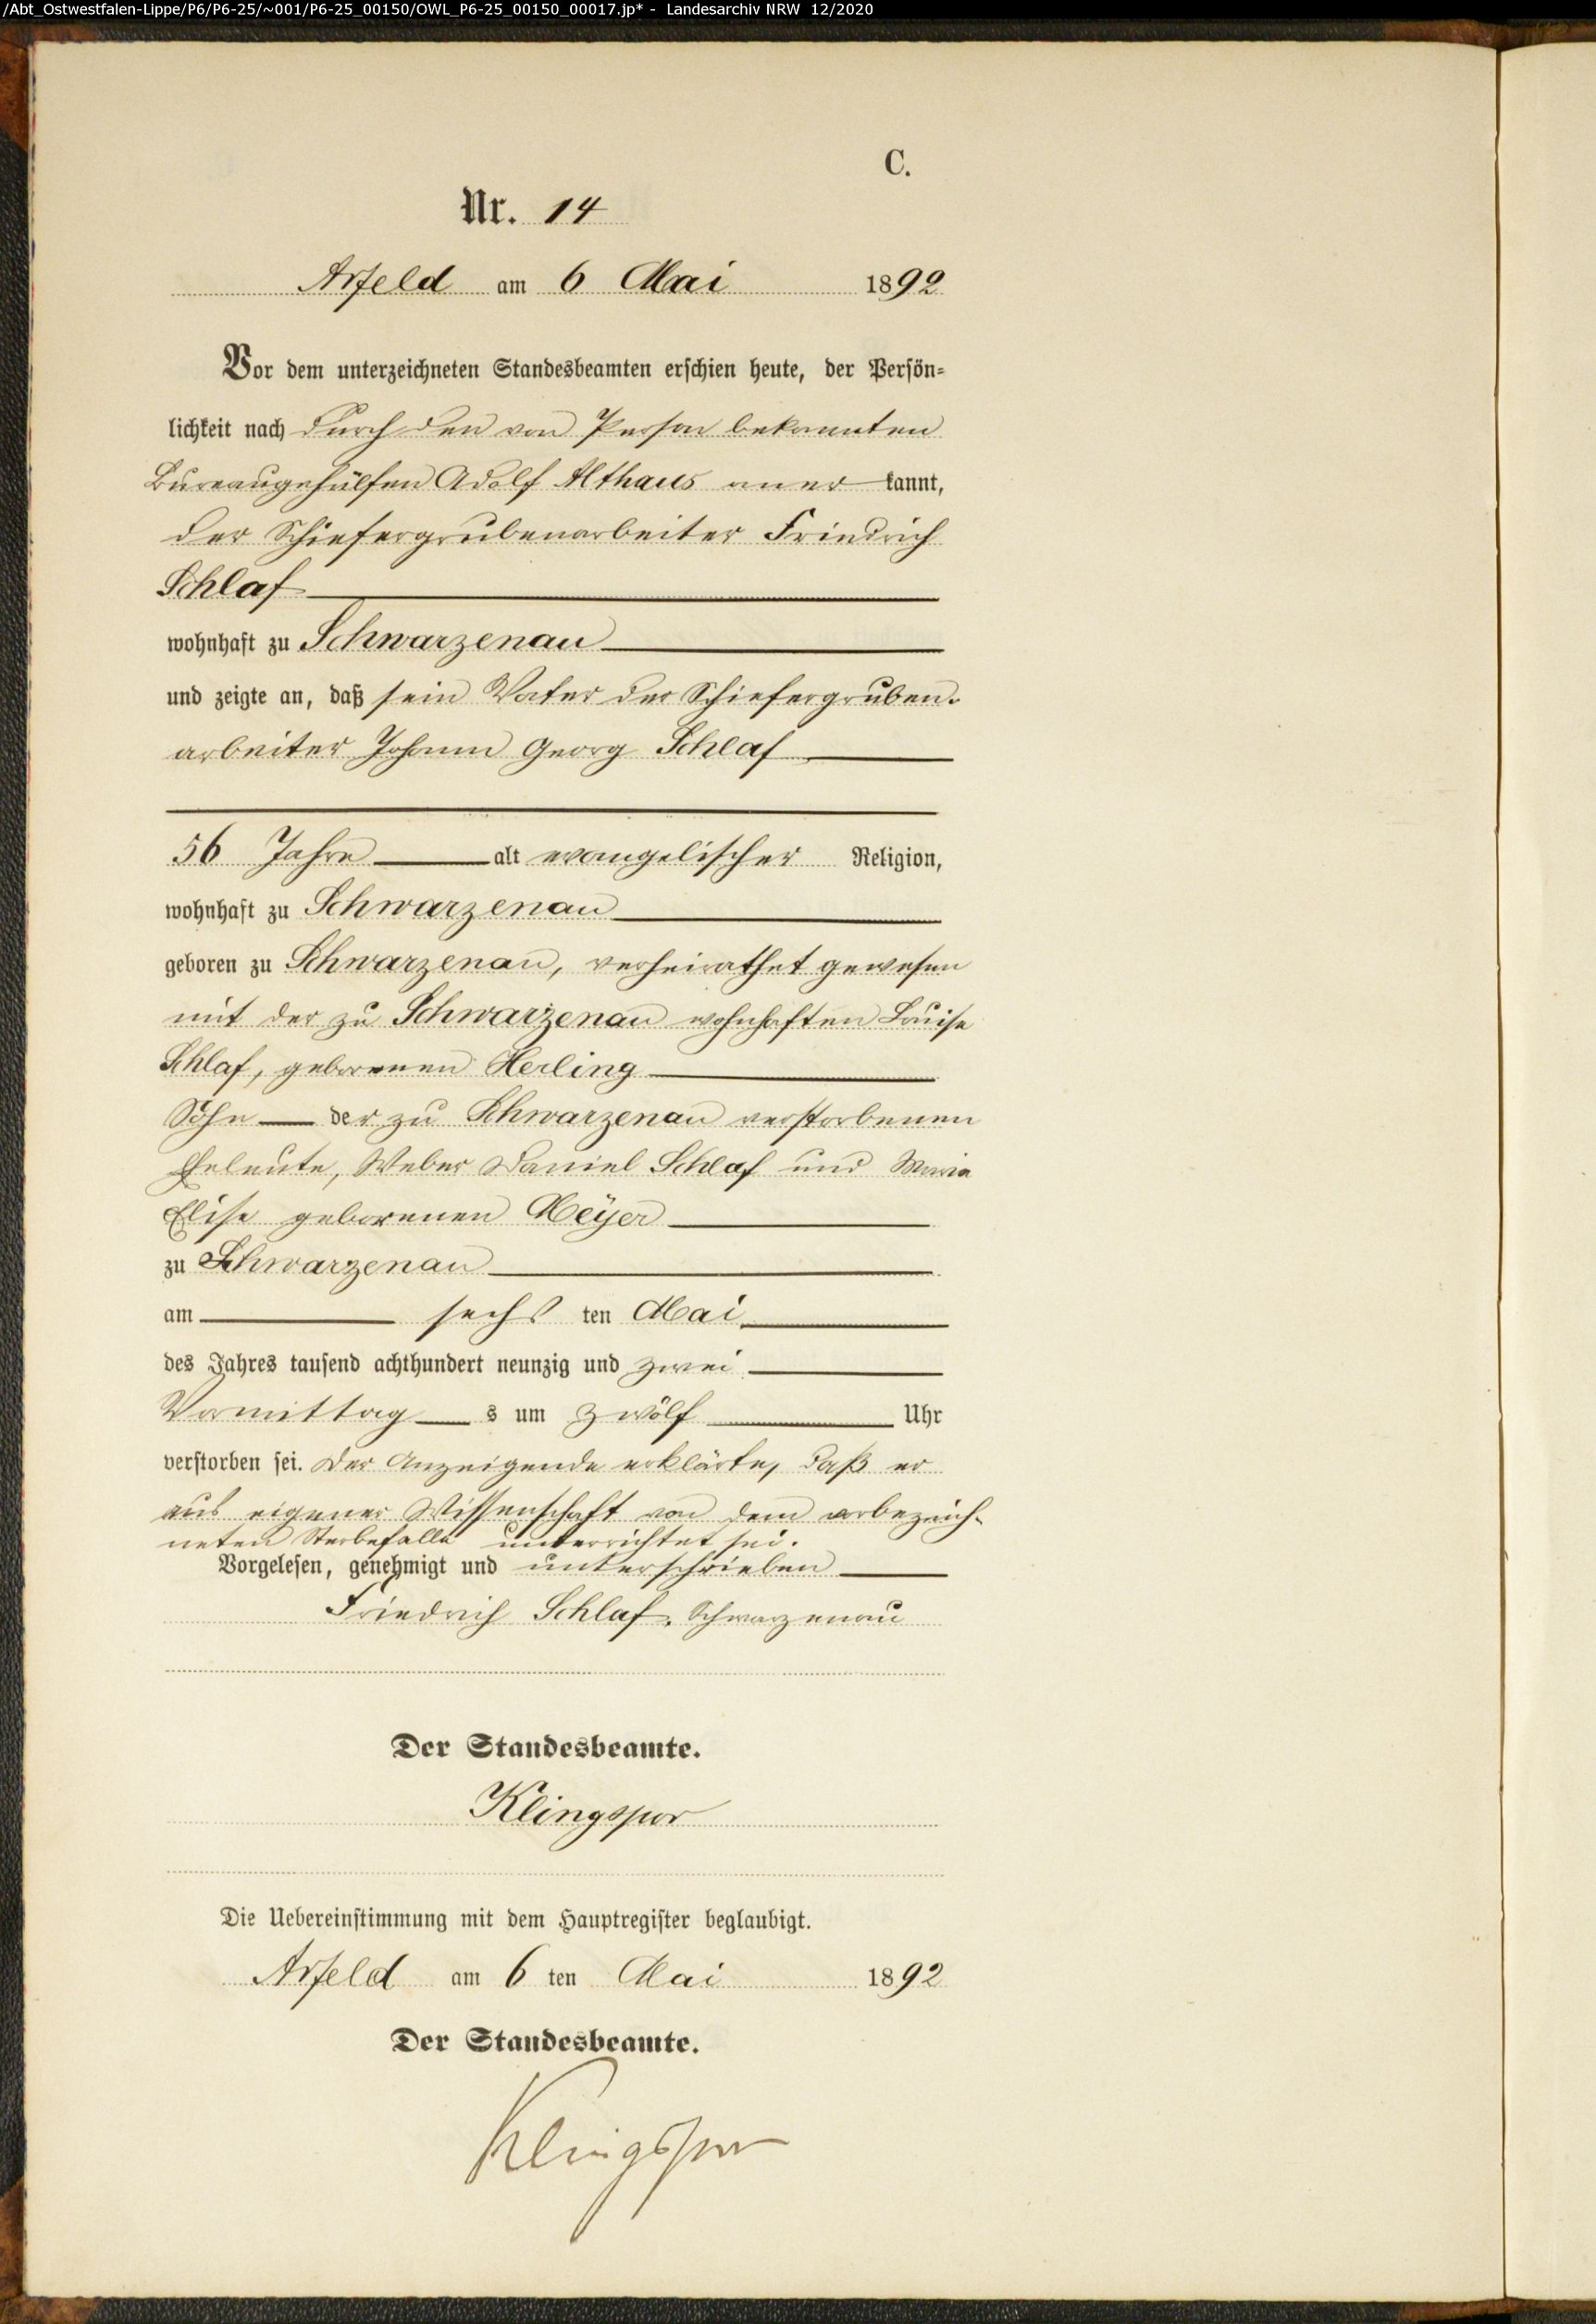 /Abt_Ostwestfalen-Lippe/P6/P6-25/~001/P6-25_00150/OWL_P6-25_00150_00017.jp* - Landesarchiv NRW 12/2020
C.
Nr. 14
Arfeld am 6 Mai 1892
Vor dem unterzeichneten Standesbeamten erschien heute, der Persön-
lichkeit nach durch den von Person bekannten
Bureaugehülfen Adolf Althaus aner kannt,
der Schiefergrubenarbeiter Friedrich
Schlaf
wohnhaft zu Schwarzenau
und zeigte an, daß sein Vater der Schiefergruben-
arbeiter Johann Georg Schlaf
56 Jahre alt evangelischer Religion,
wohnhaft zu Schwarzenau
geboren zu Schwarzenau, verheirathet gewesen
mit der zu Schwarzenau wohnhaften Louise
Schlaf, geborenen Herling
Sohn der zu Schwarzenau verstorbenen
Eheleute, Weber Daniel Schlaf und Maria
Elise geborenen Meÿer
zu Schwarzenau
am sechs ten Mai
des Jahres tausend achthundert neunzig und zwei
Vormittag s um zwölf Uhr
verstorben sei. Der Anzeigende erklärte, daß er
aus eigener Wissenschaft von dem vorbezeich-
neten Sterbefalle unterrichtet sei.
Vorgelesen, genehmigt und unterschrieben
Friedrich Schlaf. Schwarzenau
Der Standesbeamte.
Klingspor
Die Uebereinstimmung mit dem Hauptregister beglaubigt.
Arfeld am 6 ten Mai 1892
Der Standesbeamte.
Klingspor